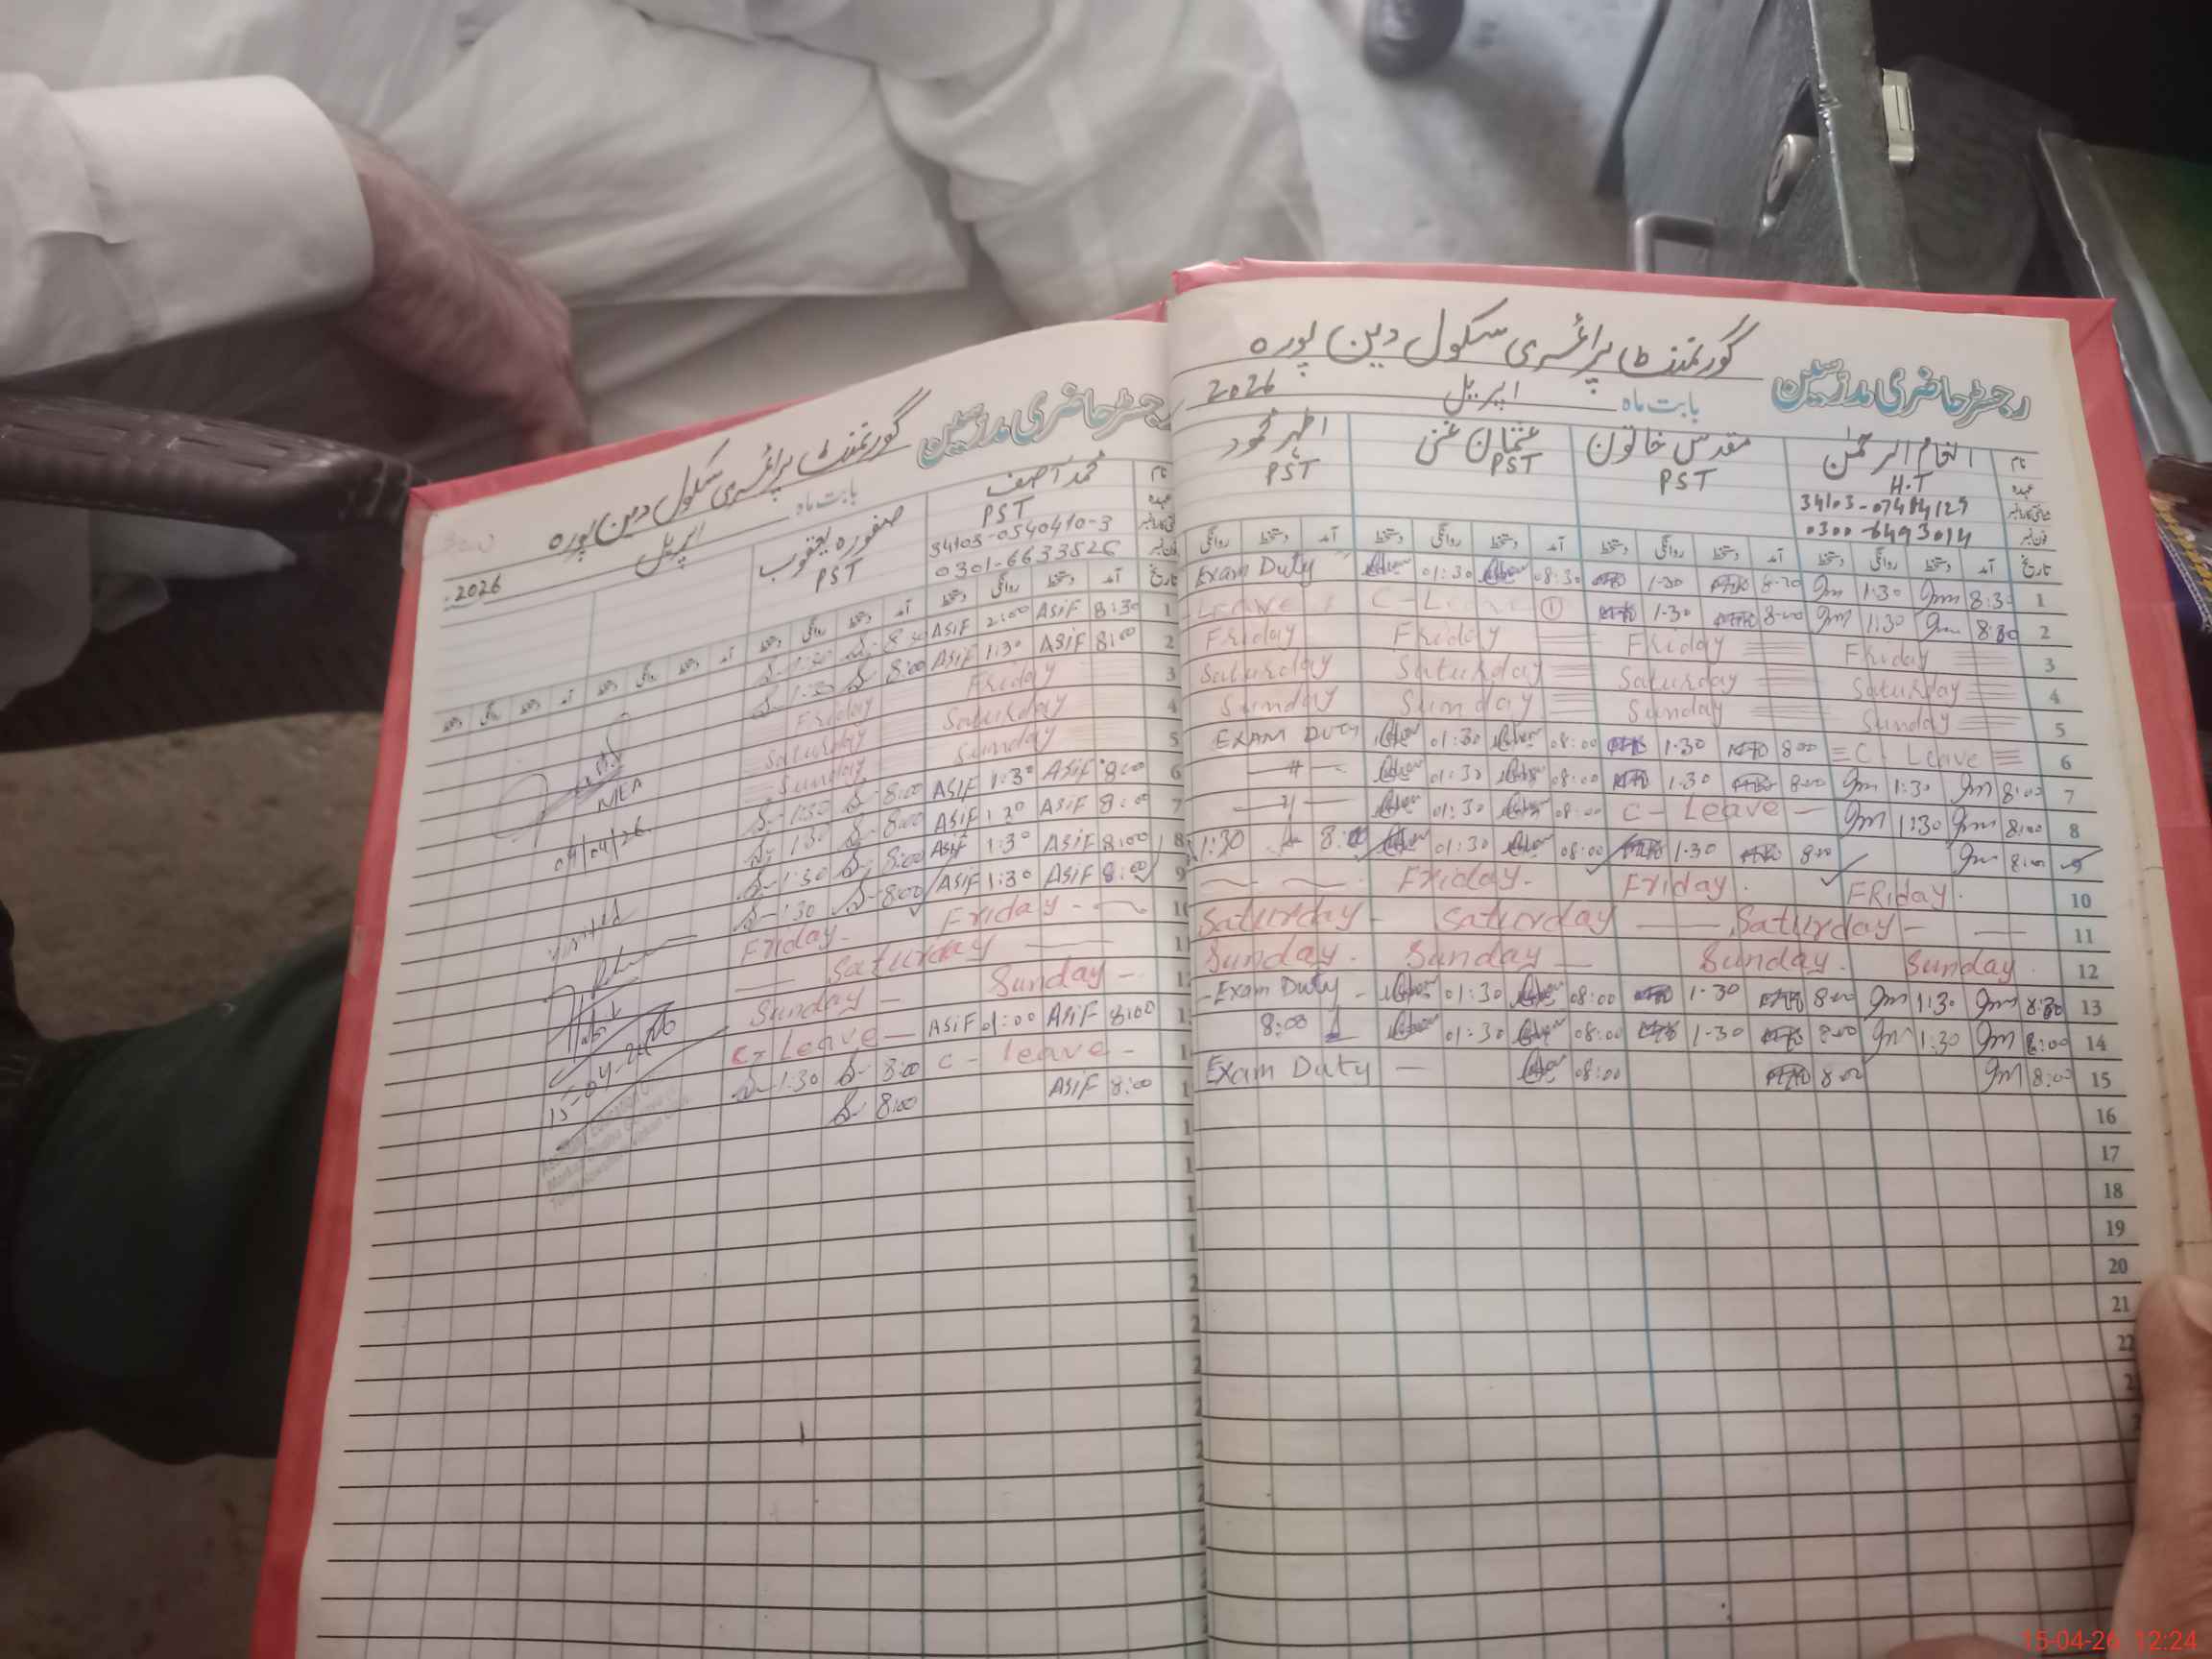 گورنمنٹ پرائمری سکول دین پورہ
رجسٹر حاضری مدرسین
بابت ماہ اپریل 2026
نام انعام الرحمٰن مقدس خاتون عثمان غنی اظہر محمود
عہدہ H.T PST PST PST
34103-0748412-9
0300-6493014
تاریخ آمد دستخط روانگی دستخط آمد دستخط روانگی دستخط آمد دستخط روانگی دستخط آمد دستخط روانگی
1 8:30 1:30 8:30 1:30 08:30 01:30 Exam Duty
2 8:30 1:30 8:00 1:30 C-Leave ① Leave
3 Friday Friday Friday Friday
4 Saturday Saturday Saturday Saturday
5 Sunday Sunday Sunday Sunday
6 C. Leave 8:00 1:30 08:00 01:30 Exam Duty
7 8:00 1:30 8:00 1:30 08:00 01:30
8 8:00 1:30 C-Leave 08:00 01:30
9 8:00 8:00 1:30 08:00 01:30 8:00 1:30
10 FRiday. Friday. Friday.
11 Saturday Saturday Saturday
12 Sunday. Sunday. Sunday Sunday.
13 8:30 1:30 8:00 1:30 08:00 01:30 Exam Duty
14 8:00 1:30 8:00 1:30 08:00 01:30 8:00
15 8:00 8:00 08:00 Exam Duty
16
17
18
19
20
21
22
گورنمنٹ پرائمری سکول دین پورہ
رجسٹر حاضری مدرسین
بابت ماہ اپریل 2026
نام محمد آصف صفورہ یعقوب
عہدہ PST PST
34103-0540410-3
0301-6633526
تاریخ آمد دستخط روانگی دستخط آمد دستخط روانگی دستخط آمد دستخط روانگی دستخط آمد دستخط روانگی دستخط
1 8:30 ASiF 2:00 ASiF 8:30 1:30
2 8:00 ASiF 1:30 ASiF 8:00 1:30
3 Friday Friday
4 Saturday Saturday
5 Sunday Sunday
6 8:00 ASiF 1:30 ASiF 8:00 1:30
7 8:00 ASiF 1:30 ASiF 8:00 1:30
8 8:00 ASiF 1:30 ASiF 8:00 1:30
9 8:00 ASiF 1:30 ASiF 8:00 1:30
Friday Friday
Saturday
Sunday Sunday
8:00 ASiF 01:00 ASiF C-Leave
C-Leave 8:00 1:30
8:00 ASiF 8:00
MEA
09/04/26
Visited
15-04-2026
15-04-26 12:24